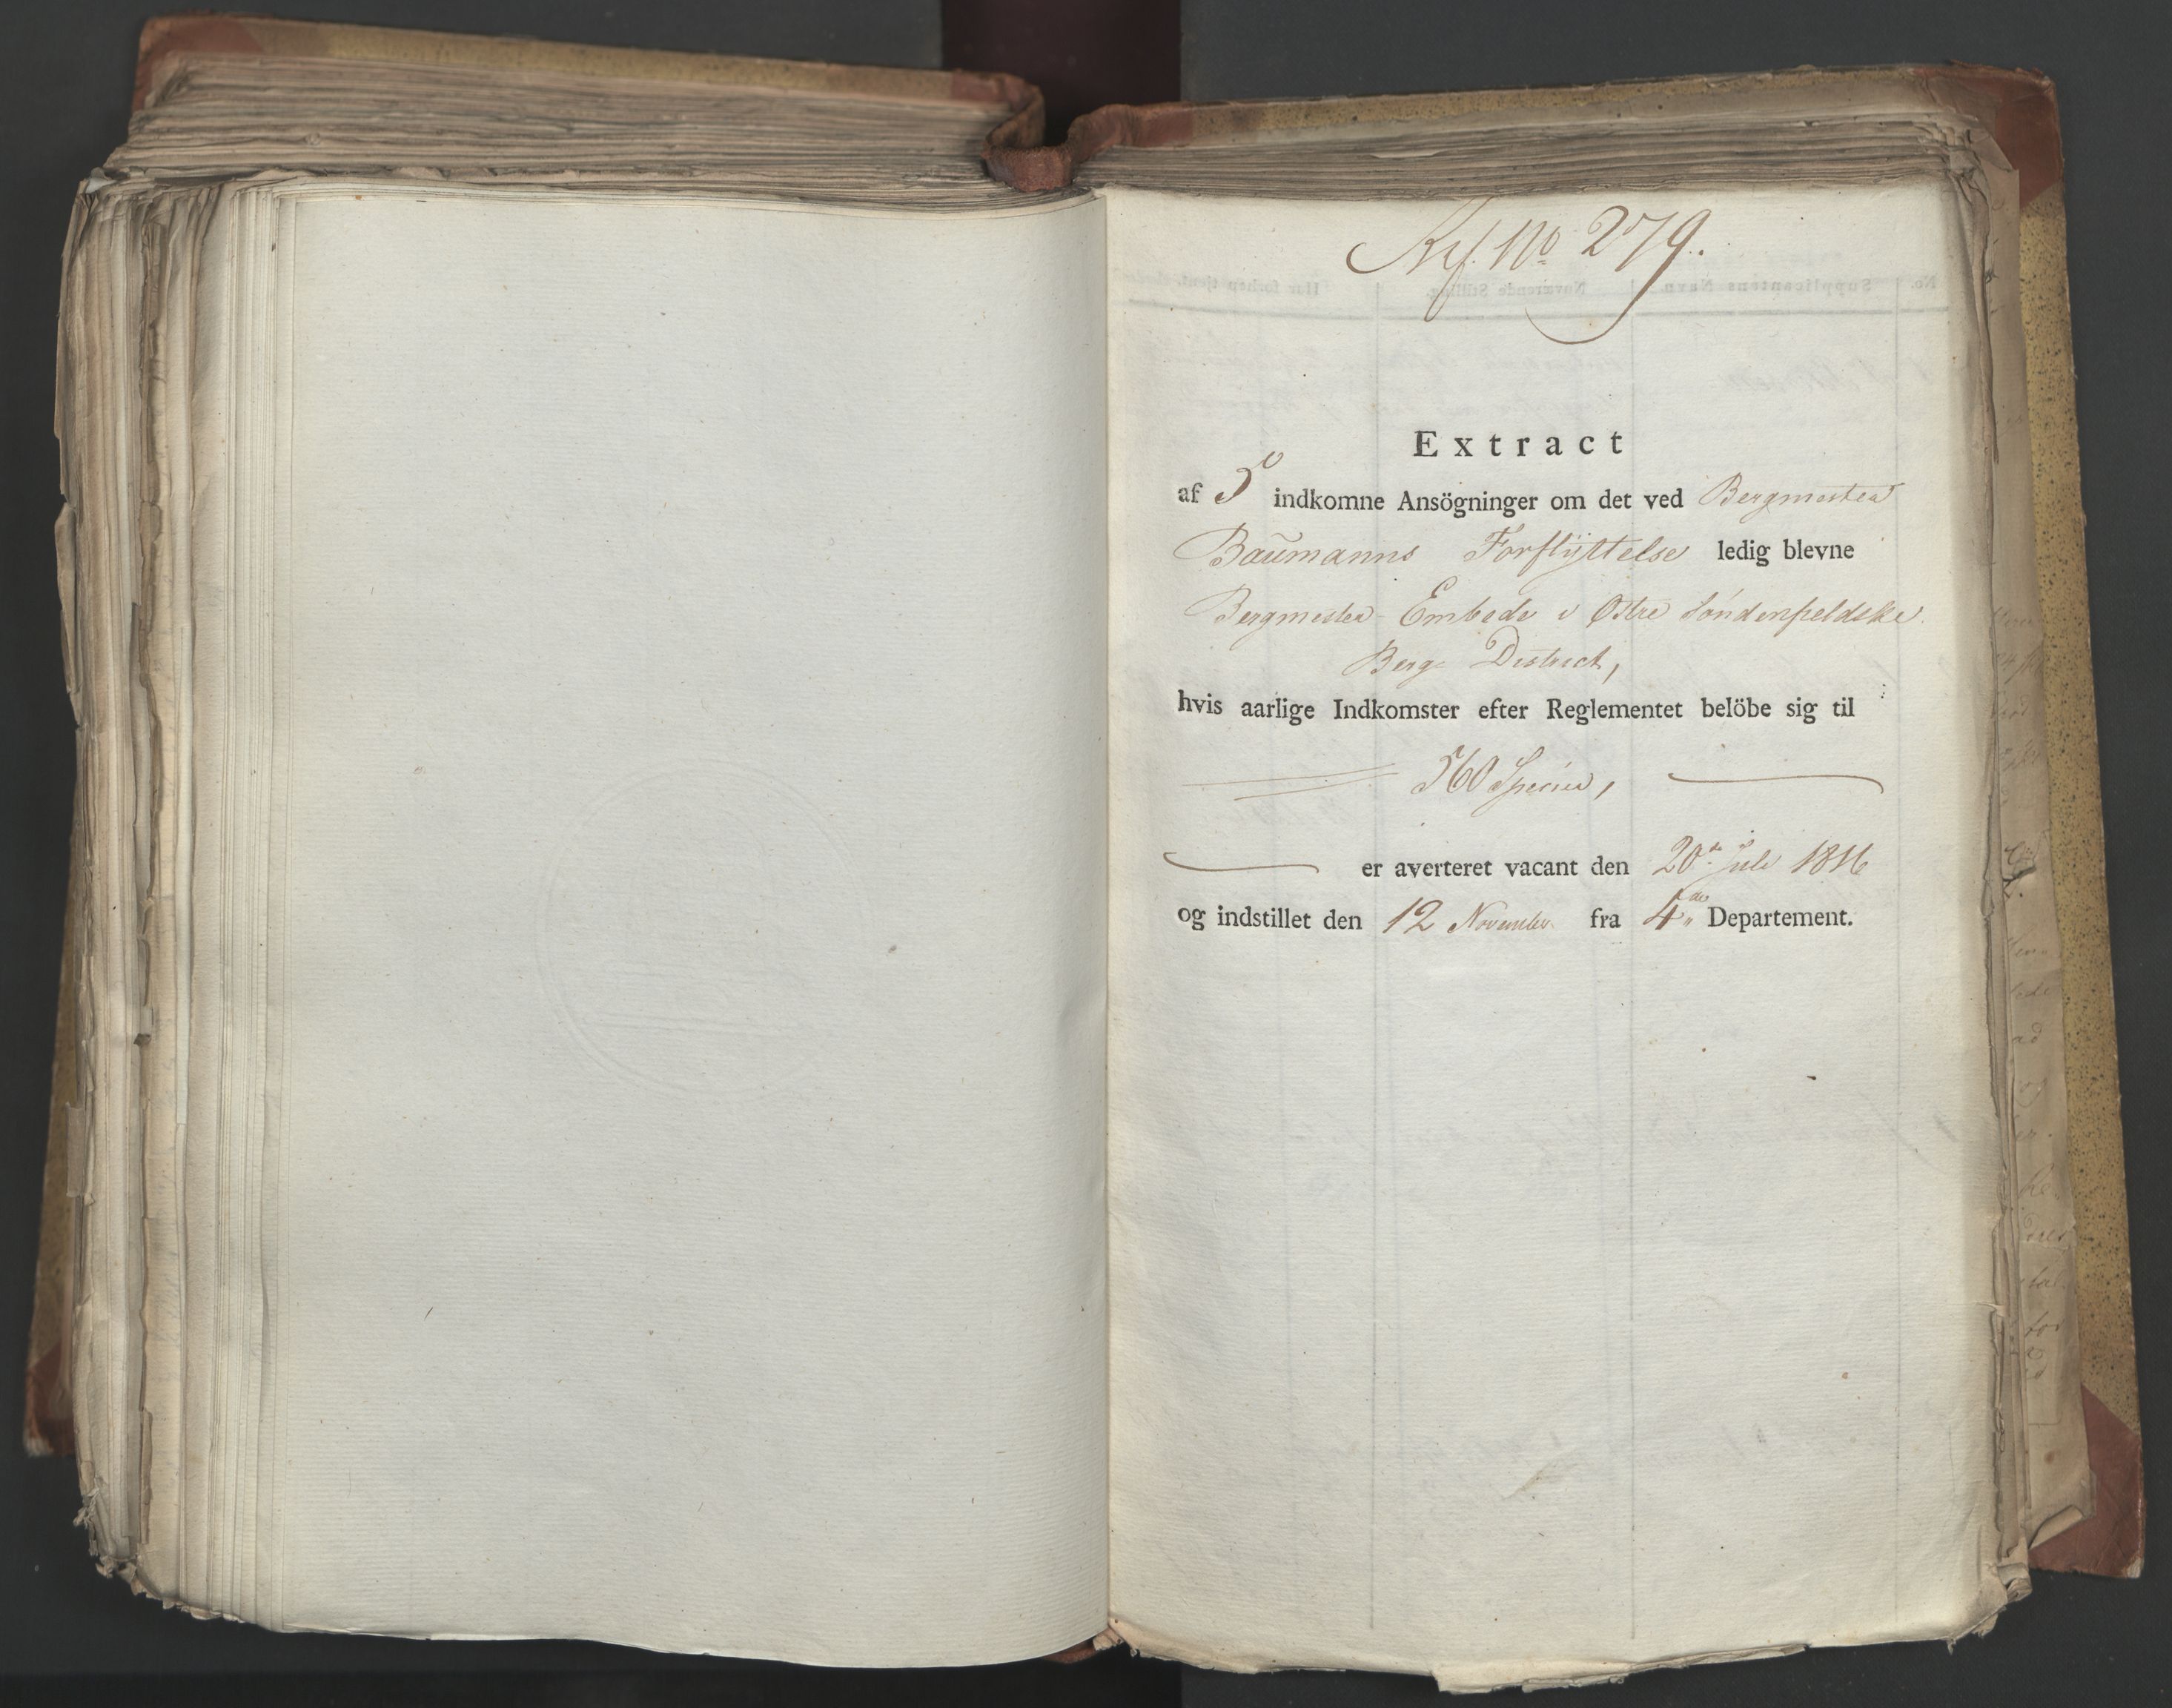 Ref. No 279.
Extract
af 5 indkomne Ansögninger om det ved Bergmester
Baumanns Forflyttelse ledig blevne
Bergmester-Embede i Østre Søndenfieldske
Berg District,
hvis aarlige Indkomster efter Reglementet belöbe sig til
560 Species,
er averteret vacant den 20de Juli 1816
og indstillet den 12 November fra 4de Departement.
No. Supplicantens Navn. Nuværende Stilling. Har forhen tjent.